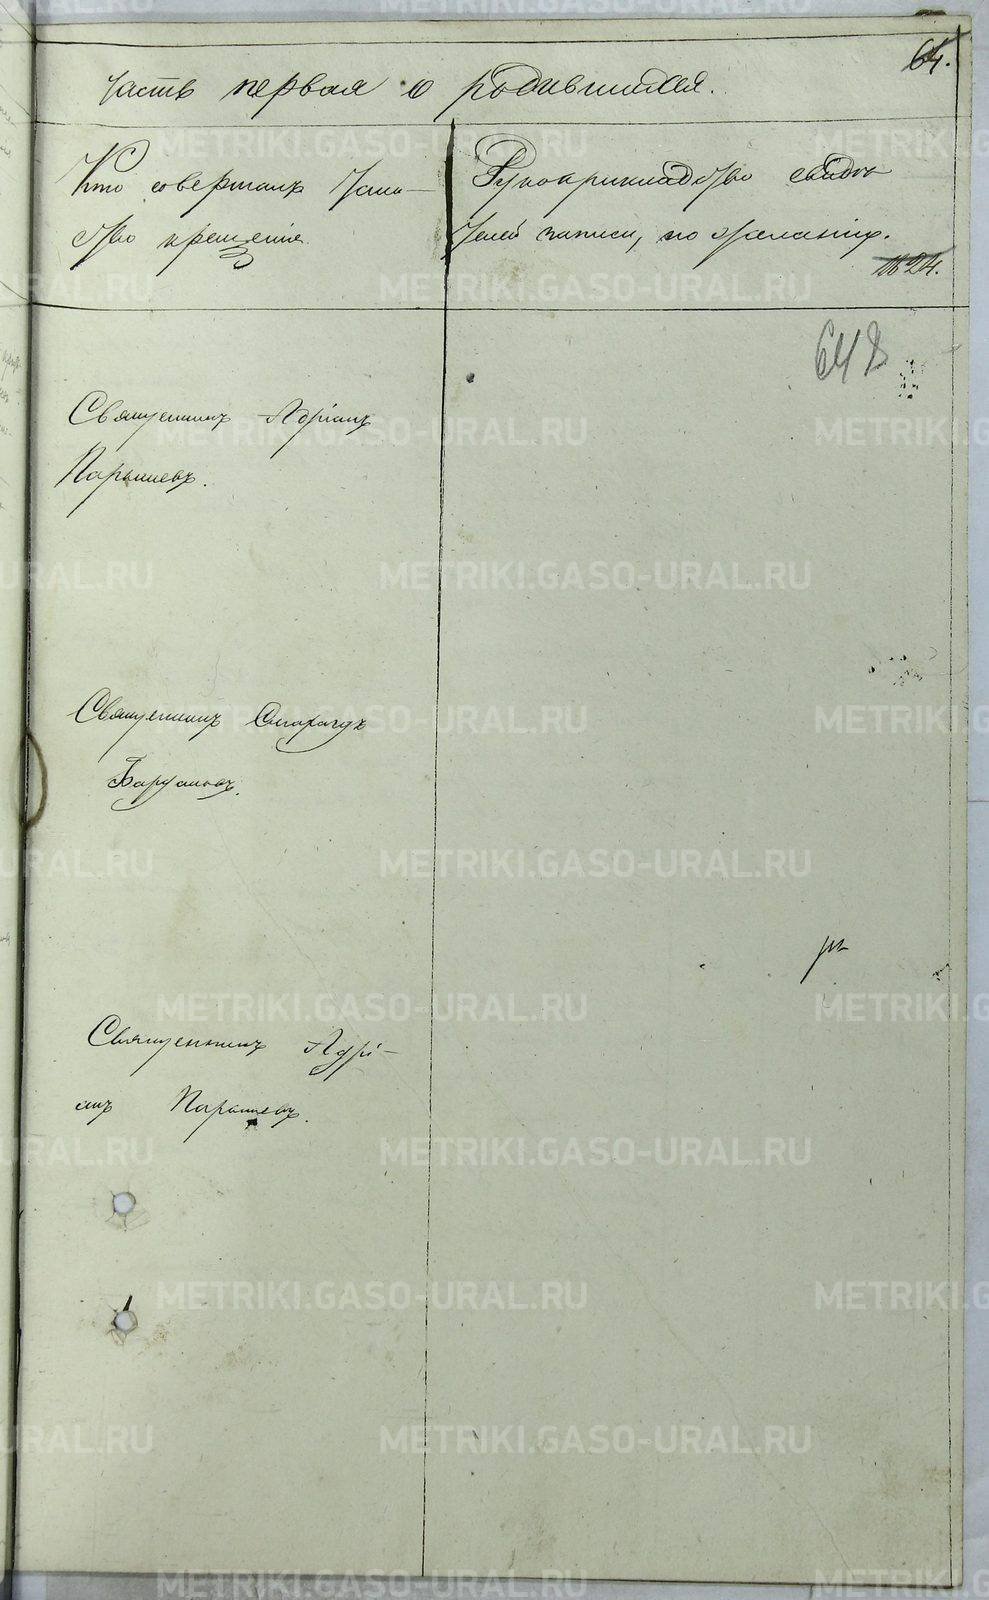 64.
Часть первая о родившихся.
Кто совершалъ таин-
ство крещенія.
Рукоприкладство свидѣ-
телей записи, по желанію.
Священникъ Адріанъ
Парышевъ.
Священникъ Смарагдъ
Священникъ Адрі-
анъ Парышевъ.
METRIKI.GASO-URAL.RU